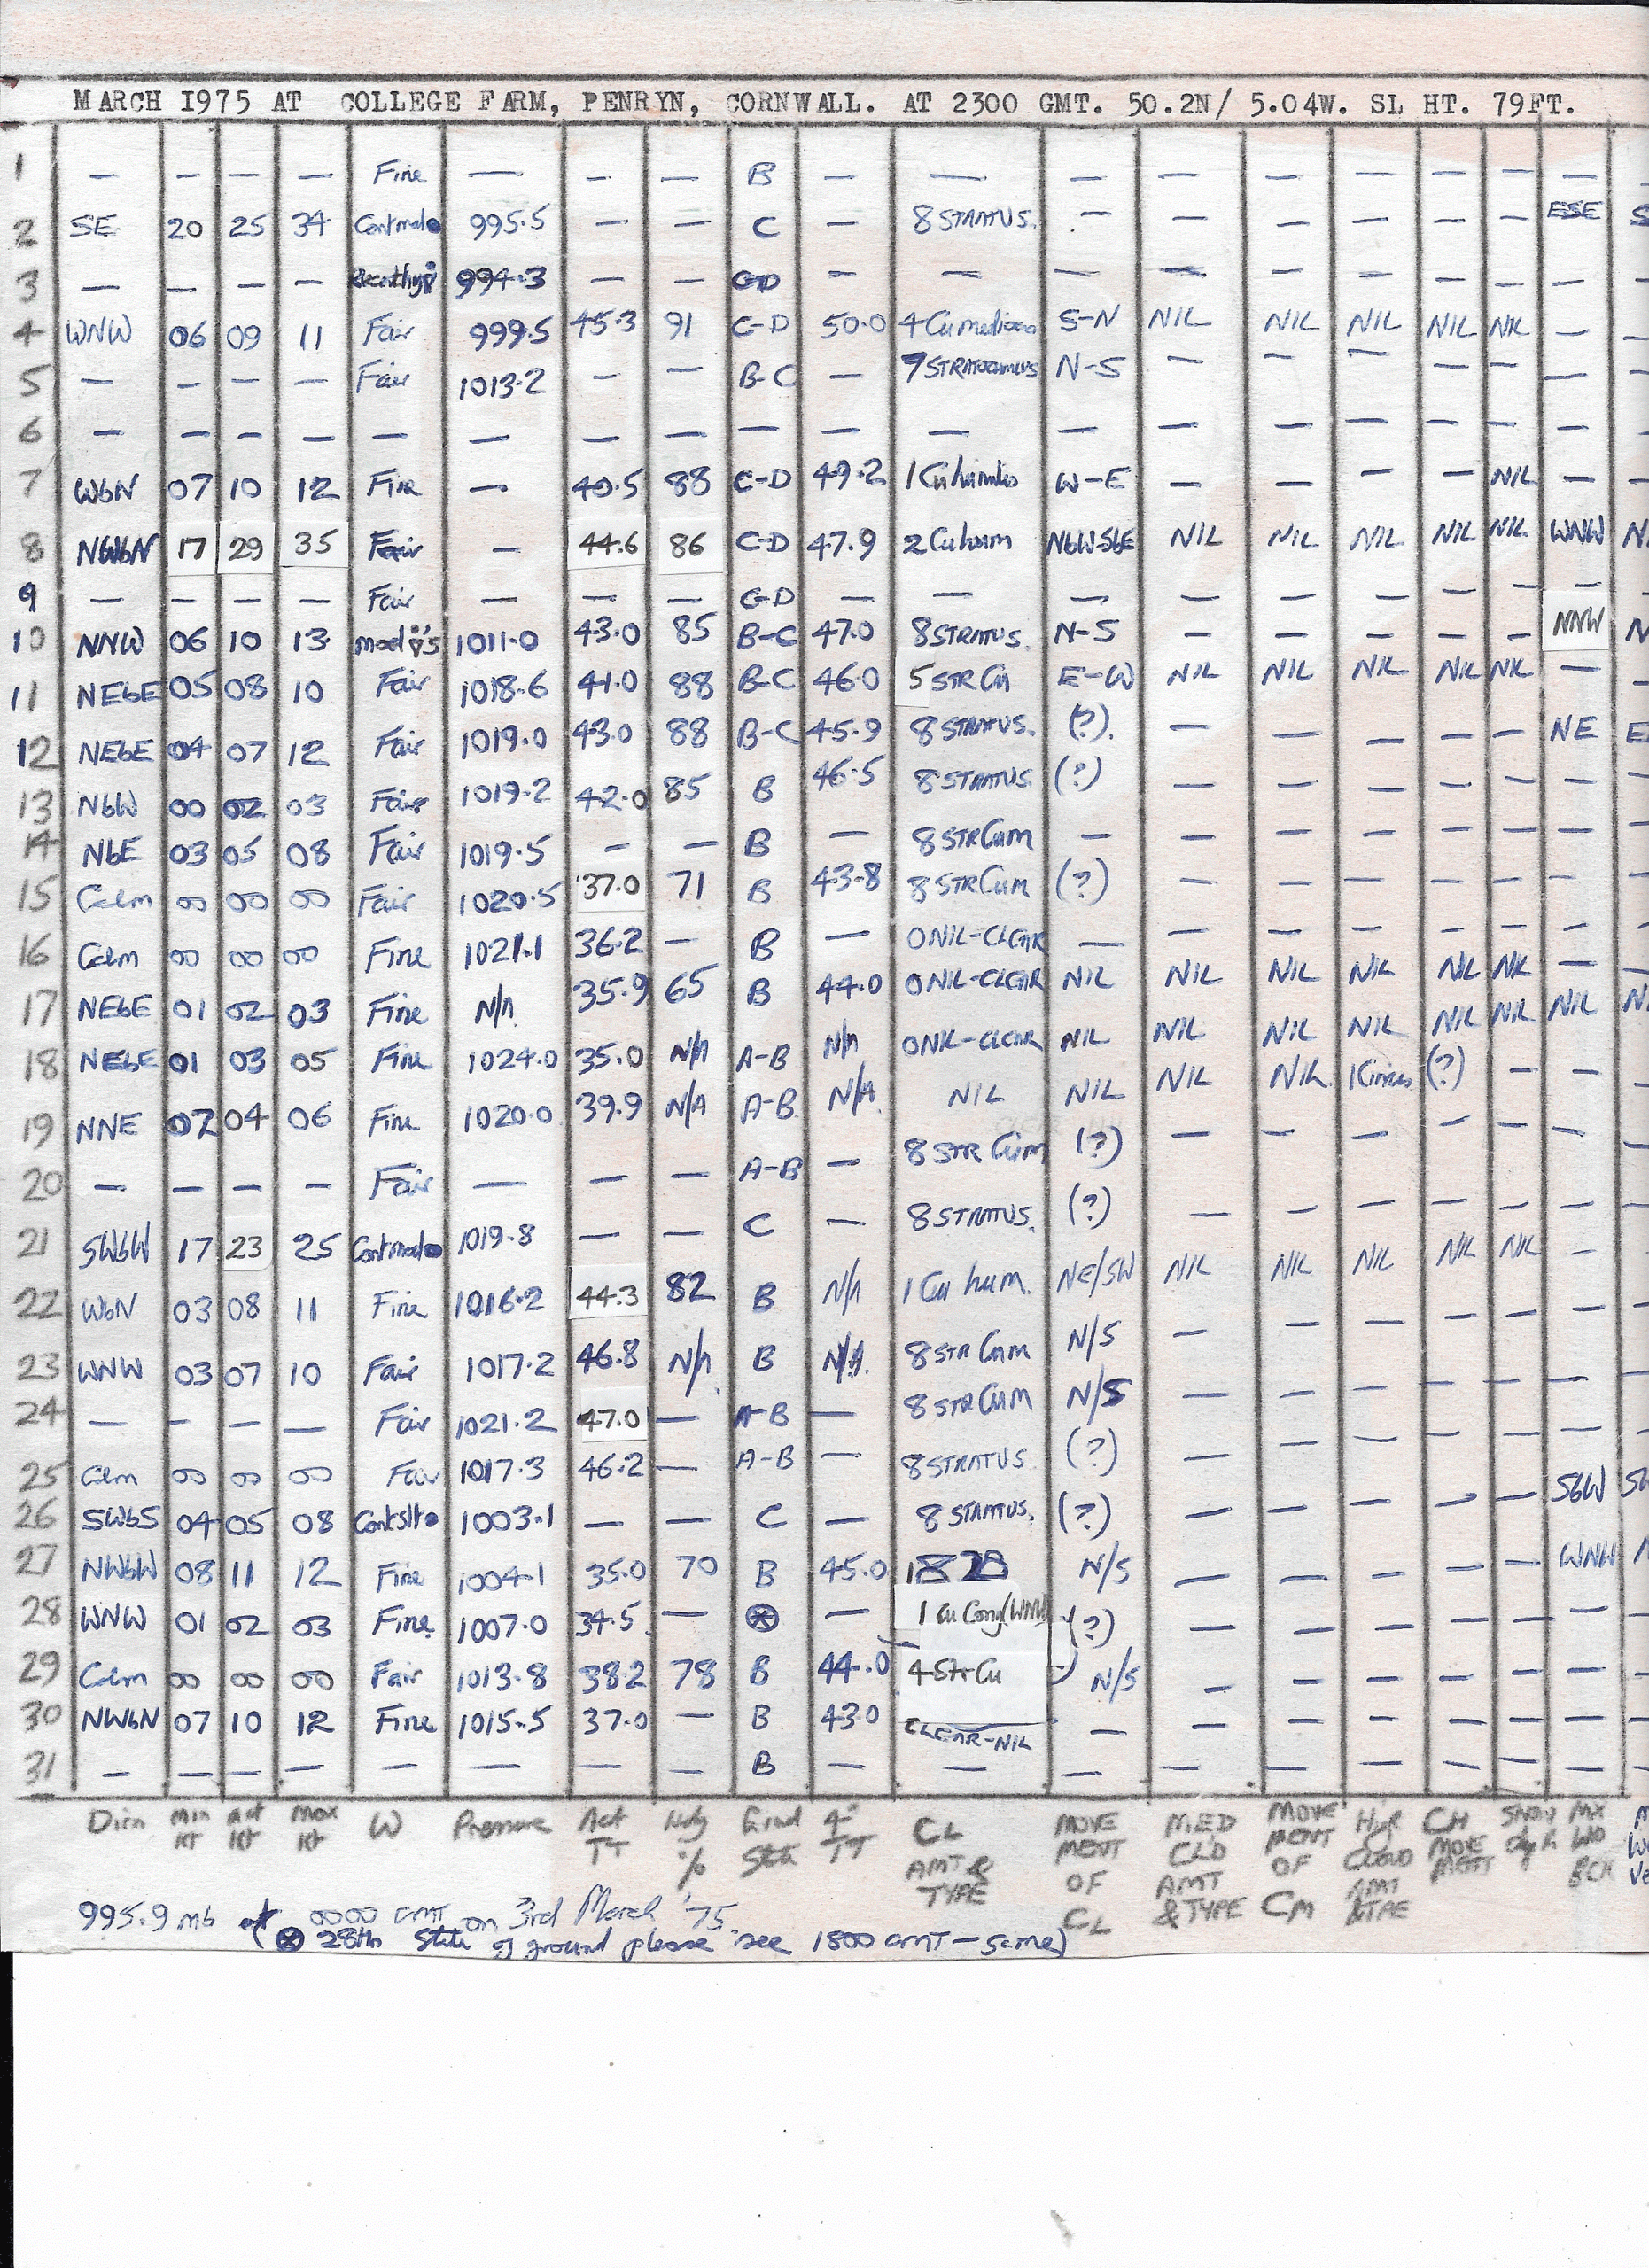 MARCH 1975 AT COLLEGE FARM, PENRYN, CORNWALL. AT 2300 GMT. 50.2N/ 5.04W. SL HT. 79FT.
1 — — — — Fine — — — B — — — — — — — — —
2 SE 20 25 34 995.5 — — C 8 STRATUS. — — — — — ESE
3 — — — — 994.3 — — — — — — — — — —
4 WNW 06 09 11 Fair 999.5 45.3 91 C-D 50.0 4 Cu S-N NIL NIL NIL NIL NIL —
5 — — — — Fair 1013.2 — — B-C — 7 N-S — — — — — —
6 — — — — — — — — — — — — — — — — — —
7 WbN 07 10 12 Fine — 40.5 88 C-D 49.2 1 Cu W-E — — — — NIL —
8 NWbN 17 29 35 Fair — 44.6 86 C-D 47.9 2 Cu hum NbW-SbE NIL NIL NIL NIL NIL WNW
9 — — — — Fair — — — — — — — — — — —
10 NNW 06 10 13 mod 1011.0 43.0 85 B-C 47.0 8 STRATUS. N-S — — — — — NNW
11 NEbE 05 08 10 Fair 1018.6 41.0 88 B-C 46.0 5 STR Cu E-W NIL NIL NIL NIL NIL —
12 NEbE 04 07 12 Fair 1019.0 43.0 88 B-C 45.9 8 STRATUS. (?). — — — — — NE
13 NbW 00 02 03 Fair 1019.2 42.0 85 B 46.5 8 STRATUS (?) — — — — — —
14 NbE 03 05 08 Fair 1019.5 — — B — 8 STR Cum — — — — — — —
15 Calm 00 00 00 Fair 1020.5 37.0 71 B 43.8 8 STR Cum (?) — — — — — —
16 Calm 00 00 00 Fine 1021.1 36.2 — B — 0 NIL-CLEAR — — — — — — —
17 NEbE 01 02 03 Fine N/A 35.9 65 B 44.0 0 NIL-CLEAR NIL NIL NIL NIL NIL NIL —
18 NEbE 01 03 05 Fine 1024.0 35.0 N/A A-B N/A 0 NIL-CLEAR NIL NIL NIL NIL NIL NIL NIL
19 NNE 02 04 06 Fine 1020.0 39.9 N/A A-B N/A NIL NIL NIL NIL 1 Cirrus (?) — —
20 — — — — Fair — — — A-B — 8 STR Cum (?) — — — — — —
21 SWbW 17 23 25 1019.8 — — C — 8 STRATUS. (?) — — — — — —
22 WbN 03 08 11 Fine 1016.2 44.3 82 B N/A 1 Cu hum. NE/SW NIL NIL NIL NIL NIL —
23 WNW 03 07 10 Fair 1017.2 46.8 N/A B N/A 8 STR Cum N/S — — — — — —
24 — — — — Fair 1021.2 47.0 — A-B — 8 STR CUM N/S — — — — — —
25 Calm 00 00 00 Fair 1017.3 46.2 — A-B — 8 STRATUS (?) — — — — —
26 SWbS 04 05 08 1003.1 — — C — 8 STRATUS. (?) — — — — — SbW
27 NWbW 08 11 12 Fine 1004.1 35.0 70 B 45.0 N/S — — — — — WNW
28 WNW 01 02 03 Fine 1007.0 34.5 — ⊗ — 1 Cu Cong (WNW) (?) — — — — — —
29 Calm 00 00 00 Fair 1013.8 38.2 78 B 44.0 4 Str Cu N/S — — — — — —
30 NWbN 07 10 12 Fine 1015.5 37.0 — B 43.0 CLEAR-NIL — — — — — — —
31 — — — — — — — — B — — — — — — — — —
Dirn Min Kt Act Kt Max Kt W Pressure Act TT Hdy % Grnd State 4" TT CL AMT & TYPE MOVEMENT OF CL MED CLD AMT & TYPE MOVEMENT OF CM CLOUD AMT &TYPE CH MOVE MENT MX WD
995.9 mb at 0000 GMT on 3rd March '75.
(⊗ 28th State of ground please see 1800 GMT — same)